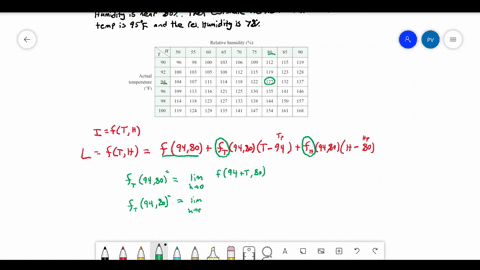 humidity is near 80%. Then estimate
temp is 95°F and the rel. humidity is 78%
Relative humidity (%)
T H 50 55 60 65 70 75 80 85 90
90 96 98 100 103 106 109 112 115 119
92 100 103 105 108 112 115 119 123 128
Actual temperature (°F) 94 104 107 111 114 118 122 127 132 137
96 109 113 116 121 125 130 135 141 146
98 114 118 123 127 133 138 144 150 157
100 119 124 129 135 141 147 154 161 168
I = f(T,H)
L = f(T,H) = f(94,80) + f_T(94,80)(T-94) + f_H(94,80)(H-80)
f_T(94,80) ≈ lim h→0 f(94+T,80)
f_T(94,80) ≈ lim h→0
PV